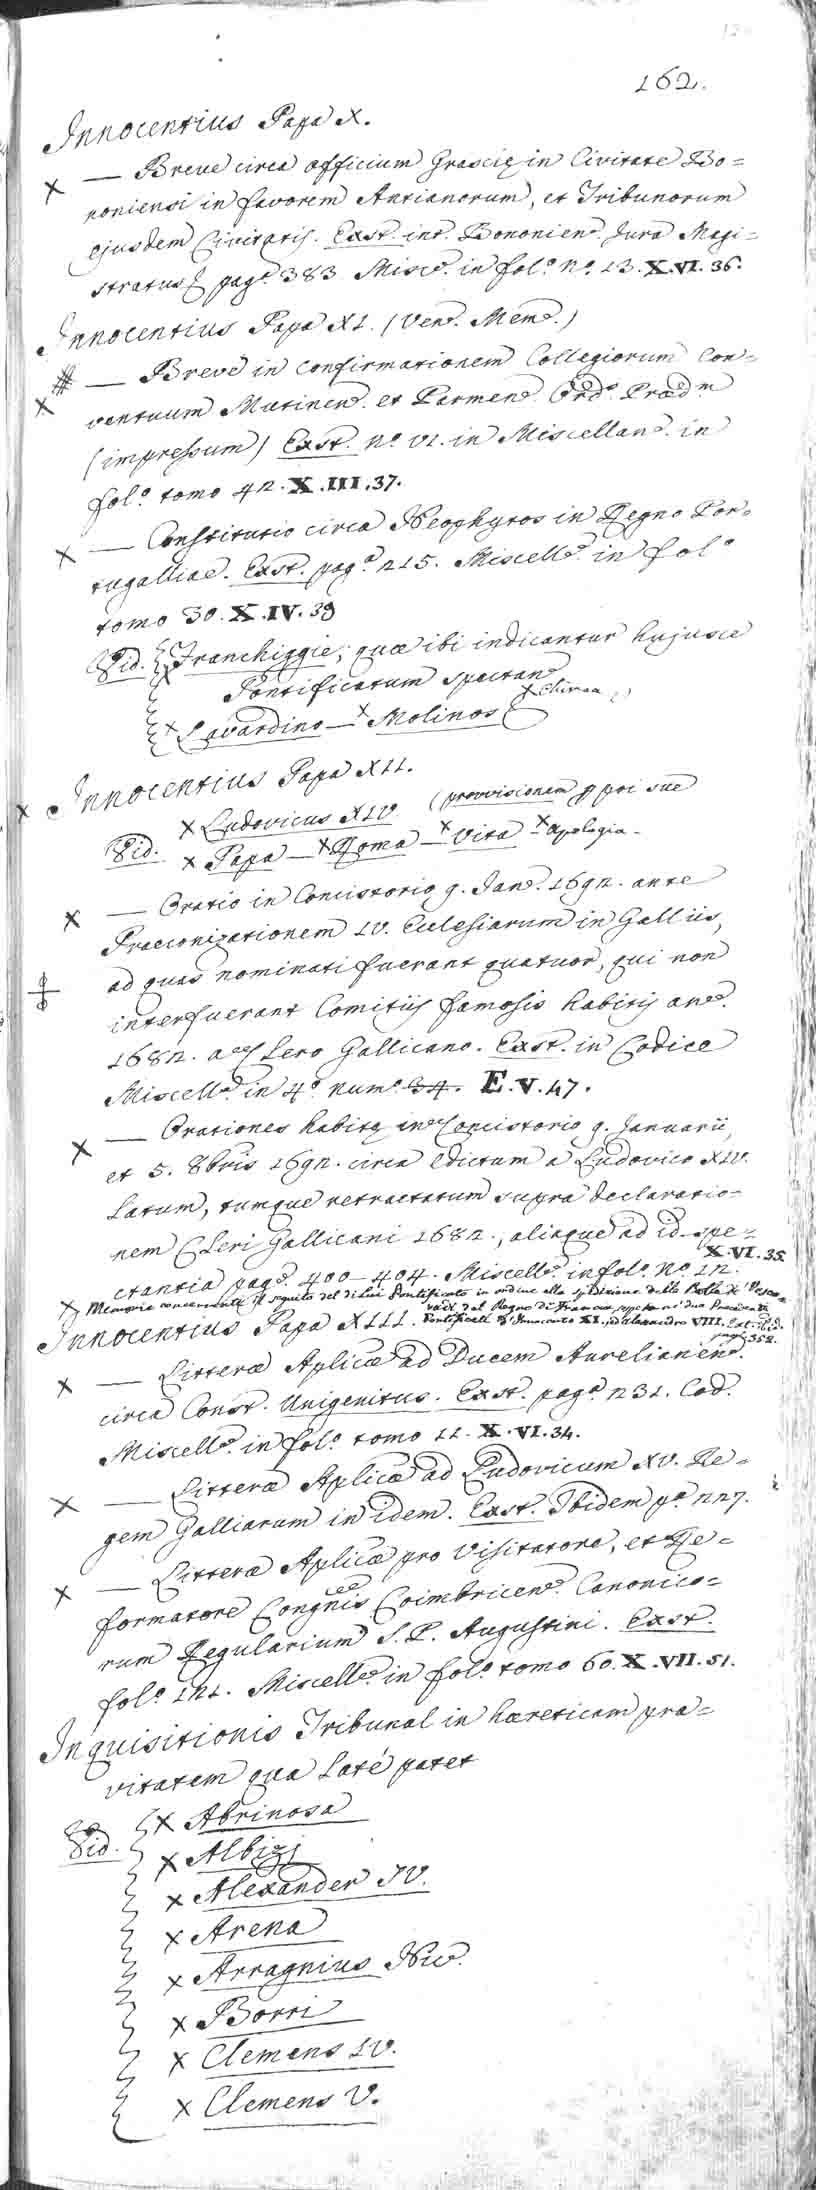 162.
Innocentius Papa X.
× — Breve circa officium Grascię in Civitate Bo=
noniensi in favorem Antianorum, et Tribunorum
ejusdem Civitatis. Exst. int. Bononien. Jura Magi=
stratus pag. 383 Misc. in fol. no. 13. X.VI.36.
Innocentius Papa XI. (Ven. Mem.)
× — Breve in confirmationem Collegiorum Con=
ventuum Mutinen. et Parmen. Ord. Præd.m
(impressum) Exst. no. VI. in Miscellan. in
fol. tomo 42. X.III.37.
× — Constitutio circa Neophytos in Regno Por=
tugalliae. Exst. pag. 215. Miscell. in fol.
tomo 30. X.IV.39
Vid. Franchiggie; quæ ibi indicantur hujusce
Pontificatum spectan
× Lavardino — × Molinos × Chinea
× Innocentius Papa XII.
Vid. × Ludovicus XIV (provvisionem
× Papa — × Roma — × Vita — × Apologia.
× — Oratio in Concistorio 9. Jan. 1692. ante
Praeconizationem IV. Ecclesiarum in Galliis,
ad quas nominati fuerant quatuor, qui non
interfuerant Comitiis famosis habitis an.
1682. a Clero Gallicano. Exst. in Codice
Miscell. in 4o. num. 34. E.V.47.
× — Orationes habitę in Concistorio 9. Januarii,
et 5. 8bris 1692. circa edictum a Ludovico XIV.
Latum, tumque retractatum supra declaratio=
nem Cleri Gallicani 1682., aliaque ad id spe=
ctantia pag. 400–404. Miscell. in fol. No. 12. X.VI.35
× Memoria concernente il seguito del di lui Pontificato in ordine alla spedizione delle Bolle de' Vesco=
vadi del Regno di Francia, rispetto ai due Precedenti
Pontificati d'Innocenzo XI., ed Alessandro VIII. Ext. ibid.
pag. 352.
Innocentius Papa XIII.
× — Litteræ Aplicæ ad Ducem Aurelianen.
circa Const. Unigenitus. Exst. pag. 231. Cod.
Miscell. in fol. tomo 11. X.VI.34.
× — Litteræ Aplicæ ad Ludovicum XV. Re=
gem Galliarum in idem. Exst. Ibidem pa. 227.
× — Litteræ Aplicæ pro Visitatore, et Re=
formatore Congnis Coimbricen. Canonico=
rum Regularium S. P. Augustini. Exst.
fol. 121. Miscell. in fol. tomo 60. X.VII.51.
Inquisitionis Tribunal in hæreticam pra=
vitatem qua laté patet
Vid. × Abrinosa
× Albizj
× Alexander IV.
× Arena
× Arragnius Nic.
× Borri
× Clemens IV.
× Clemens V.